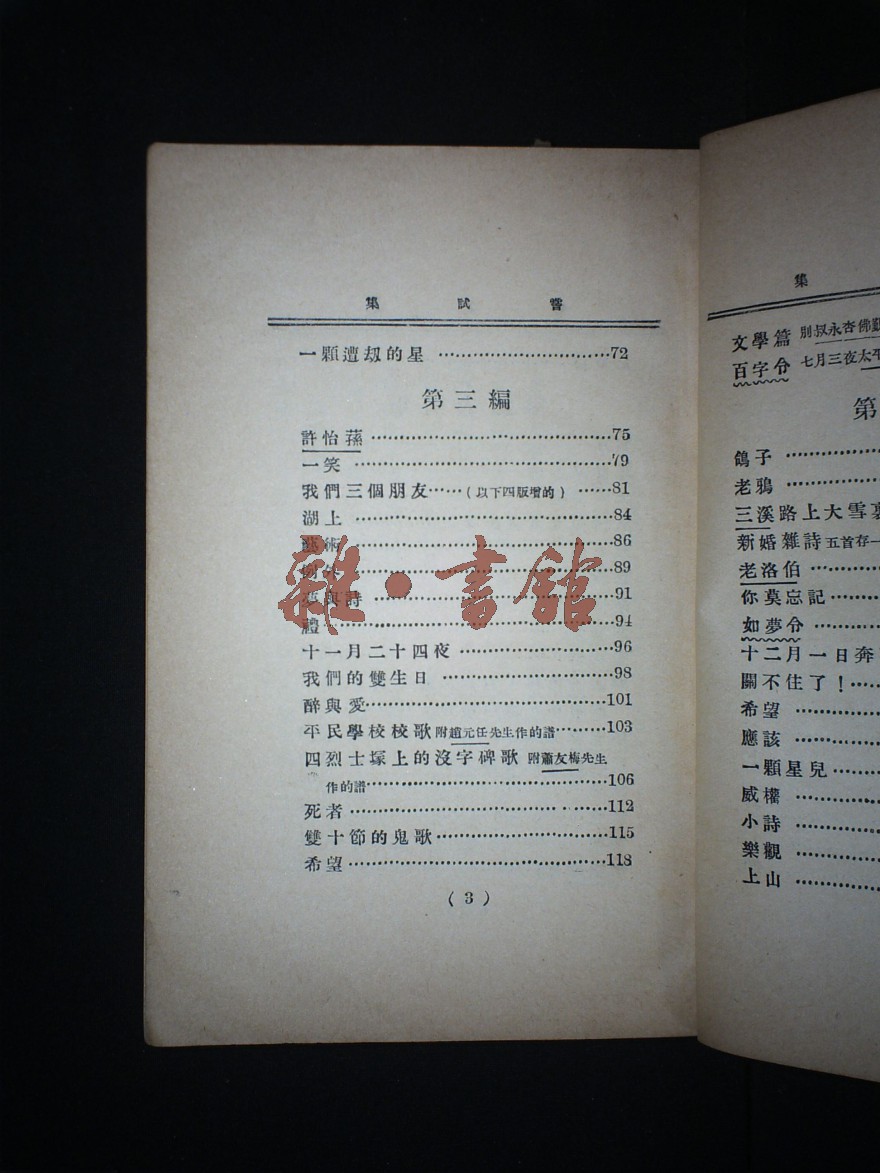 集 試 嘗
一顆遭刼的星 ……………………72
第三編
許怡蓀 ……………………75
一笑 ……………………79
我們三個朋友……(以下四版增的)……81
湖上 ……………………84
藝術 ……………………86
例外 ……………………89
夢與詩 ……………………91
禮 ……………………94
十一月二十四夜 ……………………96
我們的雙生日 ……………………98
醉與愛……………………101
平民學校校歌附趙元任先生作的譜……103
四烈士塚上的沒字碑歌 附蕭友梅先生
作的譜……………………106
死者……………………112
雙十節的鬼歌……………………115
希望……………………118
(3)
雜·書館
集
文學篇 別叔永杏佛覲
百字令 七月三夜太平
第
鴿子 ………
老鴉 ………
三溪路上大雪裏
新婚雜詩五首存一
老洛伯 …
你莫忘記……
如夢令 ……
十二月一日奔
關不住了!……
希望 ………
應該 ………
一顆星兒……
威權 ………
小詩 ………
樂觀 ………
上山 ………